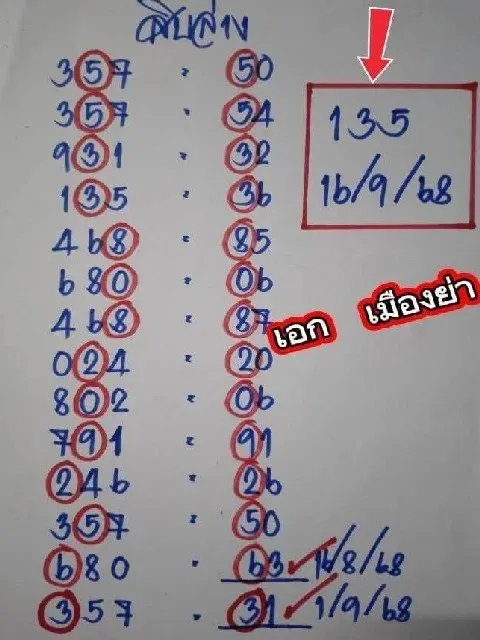 สิบล่าง
357 = 50
357 = 54
931 = 32
135 = 36
468 = 85
680 = 06
468 = 87
024 = 20
802 = 06
791 = 91
246 = 26
357 = 50
680 = 63 ✓ 16/8/68
357 = 31 ✓ 1/9/68
135
16/9/68
เอก เมืองย่า